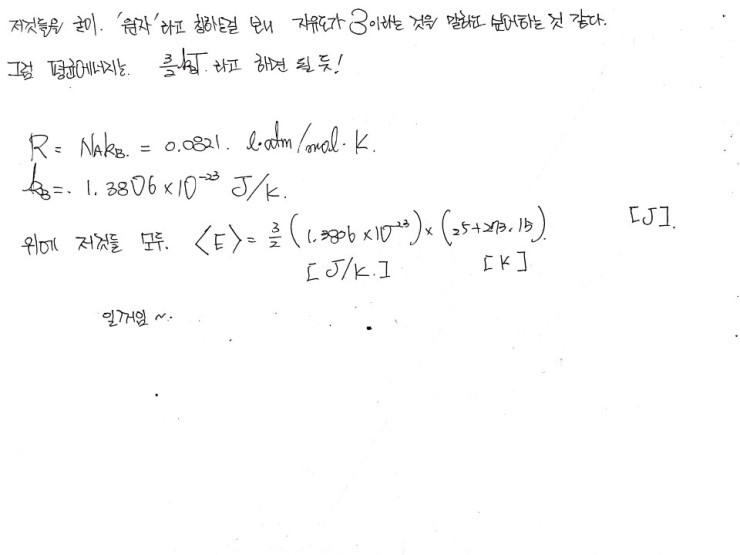 저것들을 굳이. '원자' 라고 칭하는걸 보니 자유도가 3이라는 것을 말하고 싶어하는 것 같다.
그럼 평균에너지는. 3/2 k_BT. 라고 하면 될 듯!
R = N_Ak_B. = 0.0821. l·atm/mol·K.
k_B =. 1.3806 × 10^-23 J/K.
위에 저것들 모두. <E> = 3/2 (1.3806 × 10^-23) × (25+273.15). [J].
[J/K.] [K]
일거임 ~.